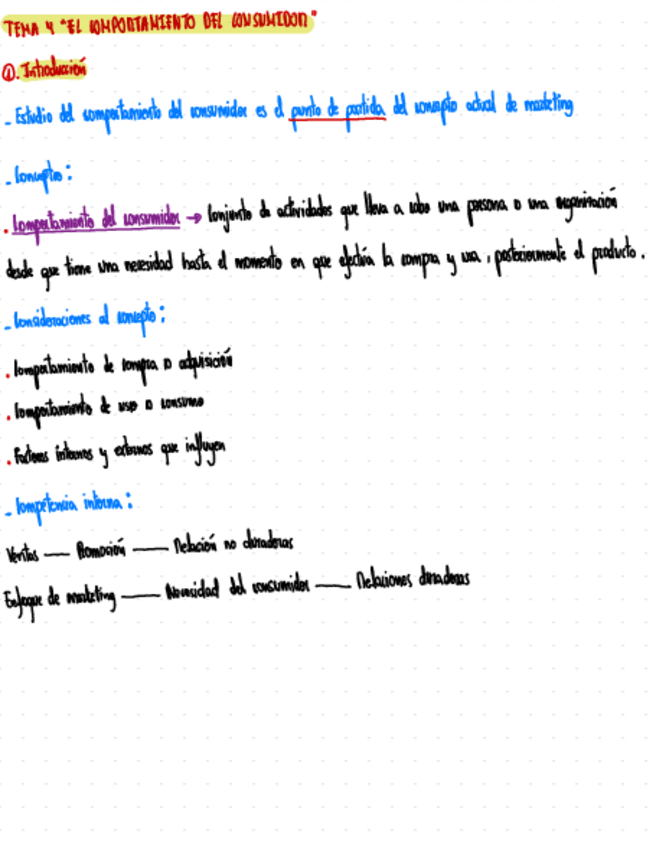 TEMA 4 "EL COMPORTAMIENTO DEL CONSUMIDOR"
①. Introducción
- Estudio del comportamiento del consumidor es el punto de partida del concepto actual de marketing
- Concepto:
. Comportamiento del consumidor → Conjunto de actividades que lleva a cabo una persona o una organización
desde que tiene una necesidad hasta el momento en que efectúa la compra y usa, posteriormente el producto.
- Consideraciones al concepto:
. Comportamiento de compra o adquisición
. Comportamiento de uso o consumo
. Factores internos y externos que influyen
- Competencia interna:
Ventas — Promoción — Relación no duraderas
Enfoque de marketing — Necesidad del consumidor — Relaciones duraderas